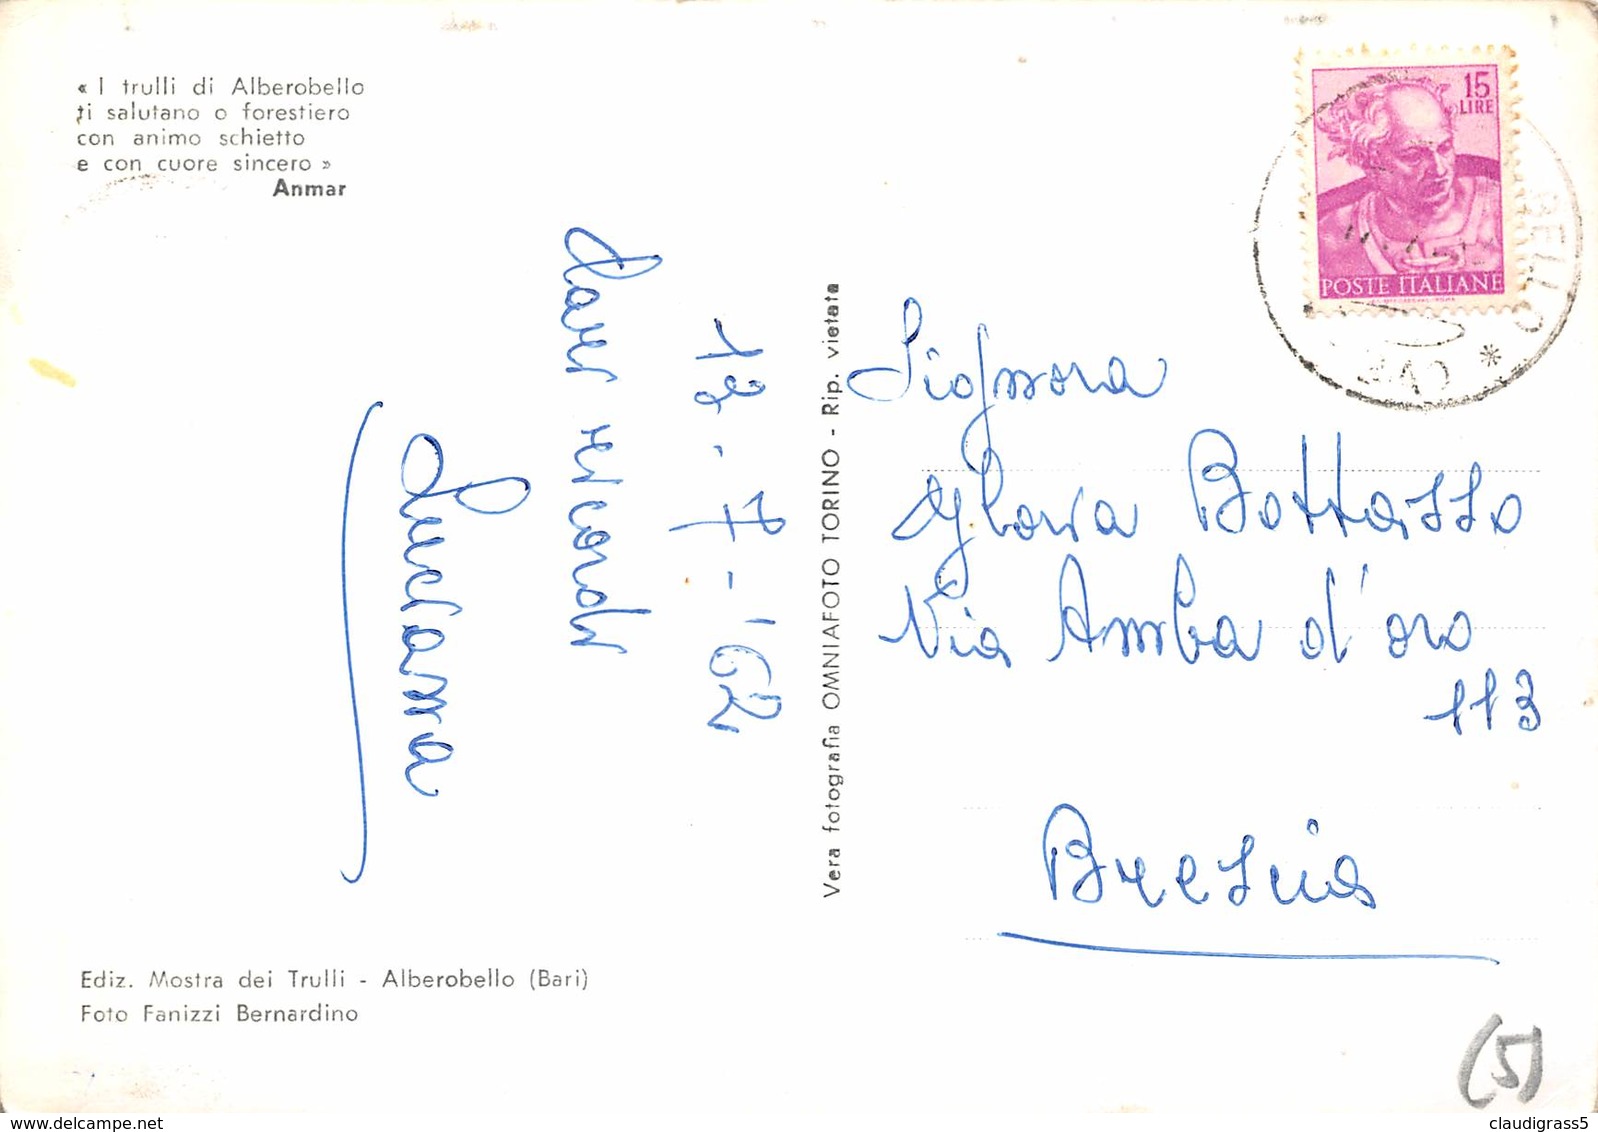 « I trulli di Alberobello
ti salutano o forestiero
con animo schietto
e con cuore sincero »
Anmar
13-7-'62
Cari ricordi
Luciana
Vera fotografia OMNIAFOTO TORINO - Rip. vietata
15
LIRE
POSTE ITALIANE
BELLO *
Signora
Gloria Bottazzo
Via Amba d'oro
113
Brescia
Ediz. Mostra dei Trulli - Alberobello (Bari)
Foto Fanizzi Bernardino
(5)
www.delcampe.net
claudigrass5